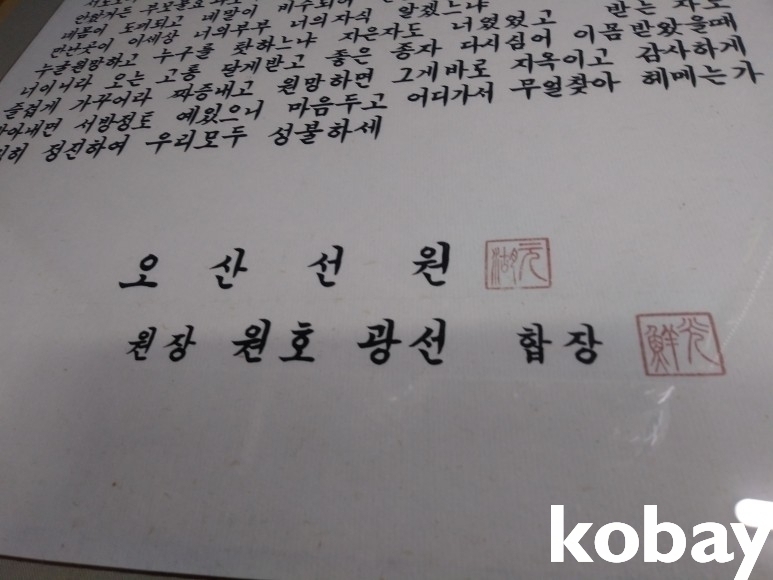 받는 자도
내몸이 도며되고 네말이 비수되어
만난곳이 이세상 너의부부 너의자식 알겠느냐
누굴원망하고 누구를 탓하느냐 지은자도 너였었고
너이니라 오는 고통 달게받고 좋은 종자 다시심어 이몸 받았을때
즐겁게 가꾸어라 짜증내고 원망하면 그게바로 지옥이고 감사하게
내면 서방정토 예있으니 마음두고 어디가서 무얼찾아 헤메는가
히 정진하여 우리모두 성불하세
오 산 선 원 元湖
원장 원호 광선 합장 光鮮
kobay